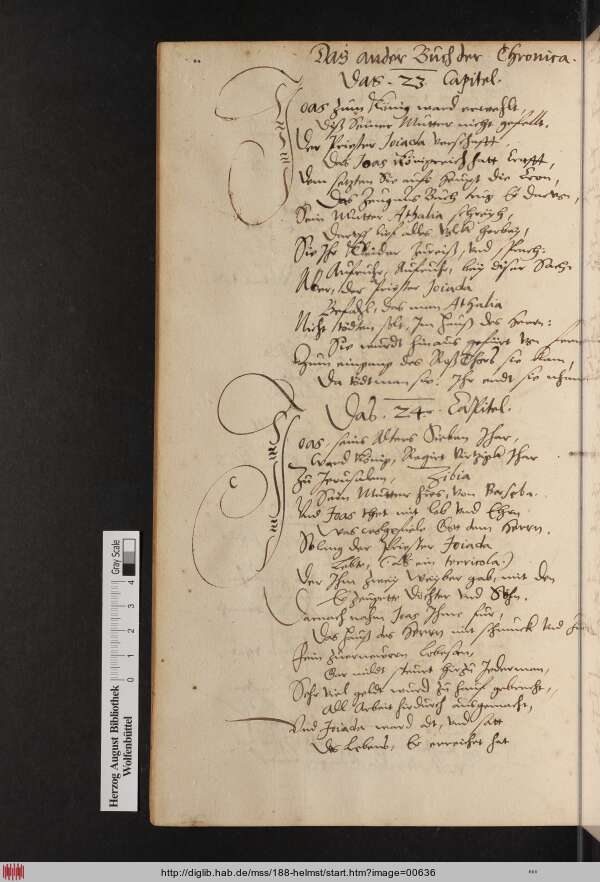 Das ander Buch der Chronica.
Das. 23. Capitel.
Joas zum König ward erwehlt,
Diß Seiner Mutter nicht gefellt.
Der Priester Joiada verschafft
Das Joas Königreich hatt krafft,
Dem setzten Sie aufs Haupt die Cron,
Das Zeugnus Buch trug Er darvon,
Sein Mutter Athalia schreyh,
Darauf lief alles Volck herbey,
Sie Ihr Kleider zureiß, und sprach:
Aufruhr, Aufruhr, bey diser Sach.
Aber, der Priester Joiada
Befahl, das man Athalia
Nicht tödten solt, Im Hauß des Herrn:
Sie wurdt hinaus gefürt von
Zum eingang des Roß Thors sie kam,
Da tödt man sie. Ihr endt sie nham
Das. 24. Capitel.
Joas, seins Alters Sieben Jhar,
Ward König, Regirt Viertzigk Jhar
Zu Jerusalem, Zibia
Sein Mutter hies, von Berseba.
Und Joas thet mit lob und Ehrn
Was wolgefiele Gott dem Herrn.
So lang der Priester Joiada
Lebte, (als ein terricola.)
Der Ihm zwey Weyber gab, mit den
Er zeugette Döchter und Söhn.
Darnach nahm Joas Ihme für,
Das Hauß des Herrn mit schmuck und
Fein zuernewren lobesan,
Gar mildt steurt hirzu Jederman,
Sehr viel geldt wurd zu hauf gebracht,
All Arbeit hirdurch ausgemacht,
Und Joiada ward alt, und satt
Des Lebens, Er erreichet hat
Gray Scale
0 1 2 3 4
Herzog August Bibliothek
Wolfenbüttel
http://diglib.hab.de/mss/188-helmst/start.htm?image=00636